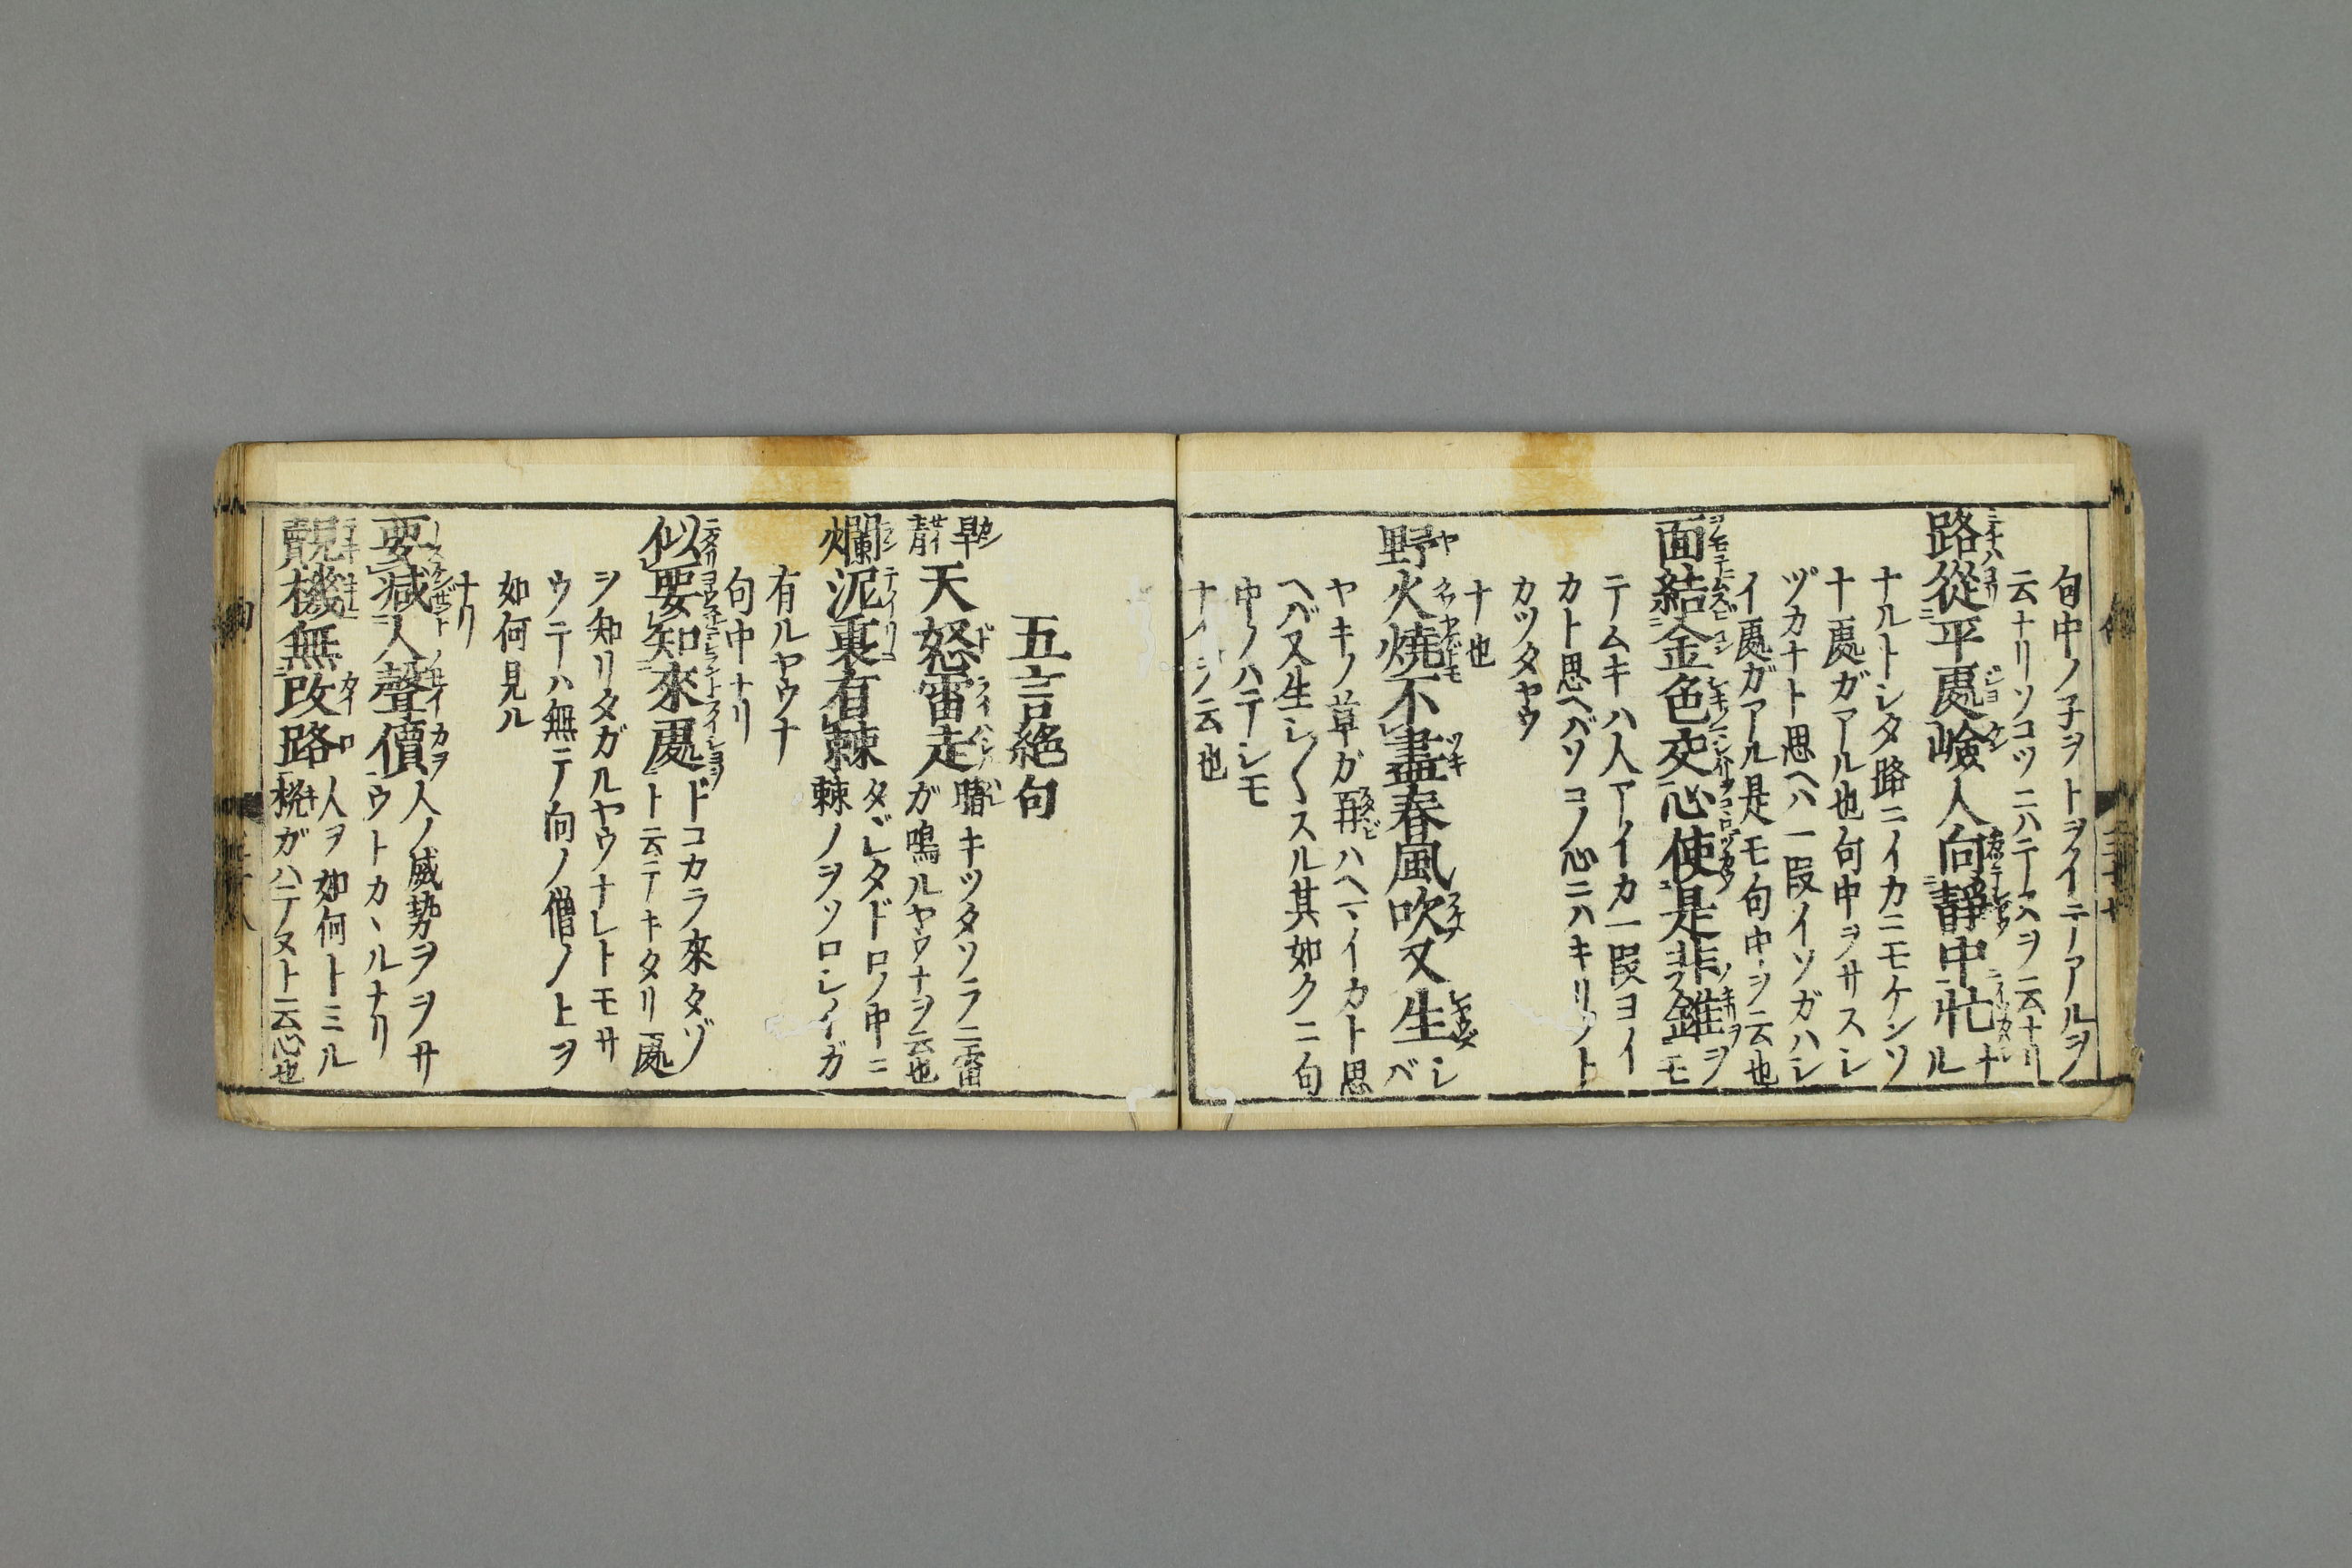 句中ノ子ヲトヲイニアルヲ
云ナリソコツニハテスヲ云ナリ
路從平處嶮人向靜中忙
ナルトシタ路ニイカニモケンソ
ナ處ガアル也句中ヲサスレ
ヅカナト思ヘハ一段イソガハシ
イ處ガアル是モ句中ヲ云也
面結金色交心使是非錐
テムキハ人アイカ一段ヨイ
カト思ヘバソコノ心ニハキリノト
カツタヤウ
ナ也
野火燒不盡春風吹又生
ヤキノ草ガ再ハヘマイカト思
ヘバ又生シ〱スル其如クニ句
中ノハテシモ
ナイヲ云也
五言絶句
旱暗キツタソラニ雷
青天怒雷走ガ鳴ルヤウナヲ云也
タヾレタドロノ中ニ
爛泥裏有棘棘ノヲソロシイガ
有ルヤウナ
句中ナリ
ドコカラ來タゾ
似要知來處ト云テキタリ處
ヲ知リタガルヤウナレトモサ
ウテハ無テ向ノ僧ノ上ヲ
如何見ル
ナリ
人ノ威勢ヲヲサ
要減人聲價ウトカヽルナリ
人ヲ如何トミル
覿機無改路機ガハテヌト云心也